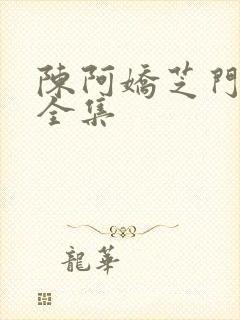 陳阿嬌芝門
全集
龍華